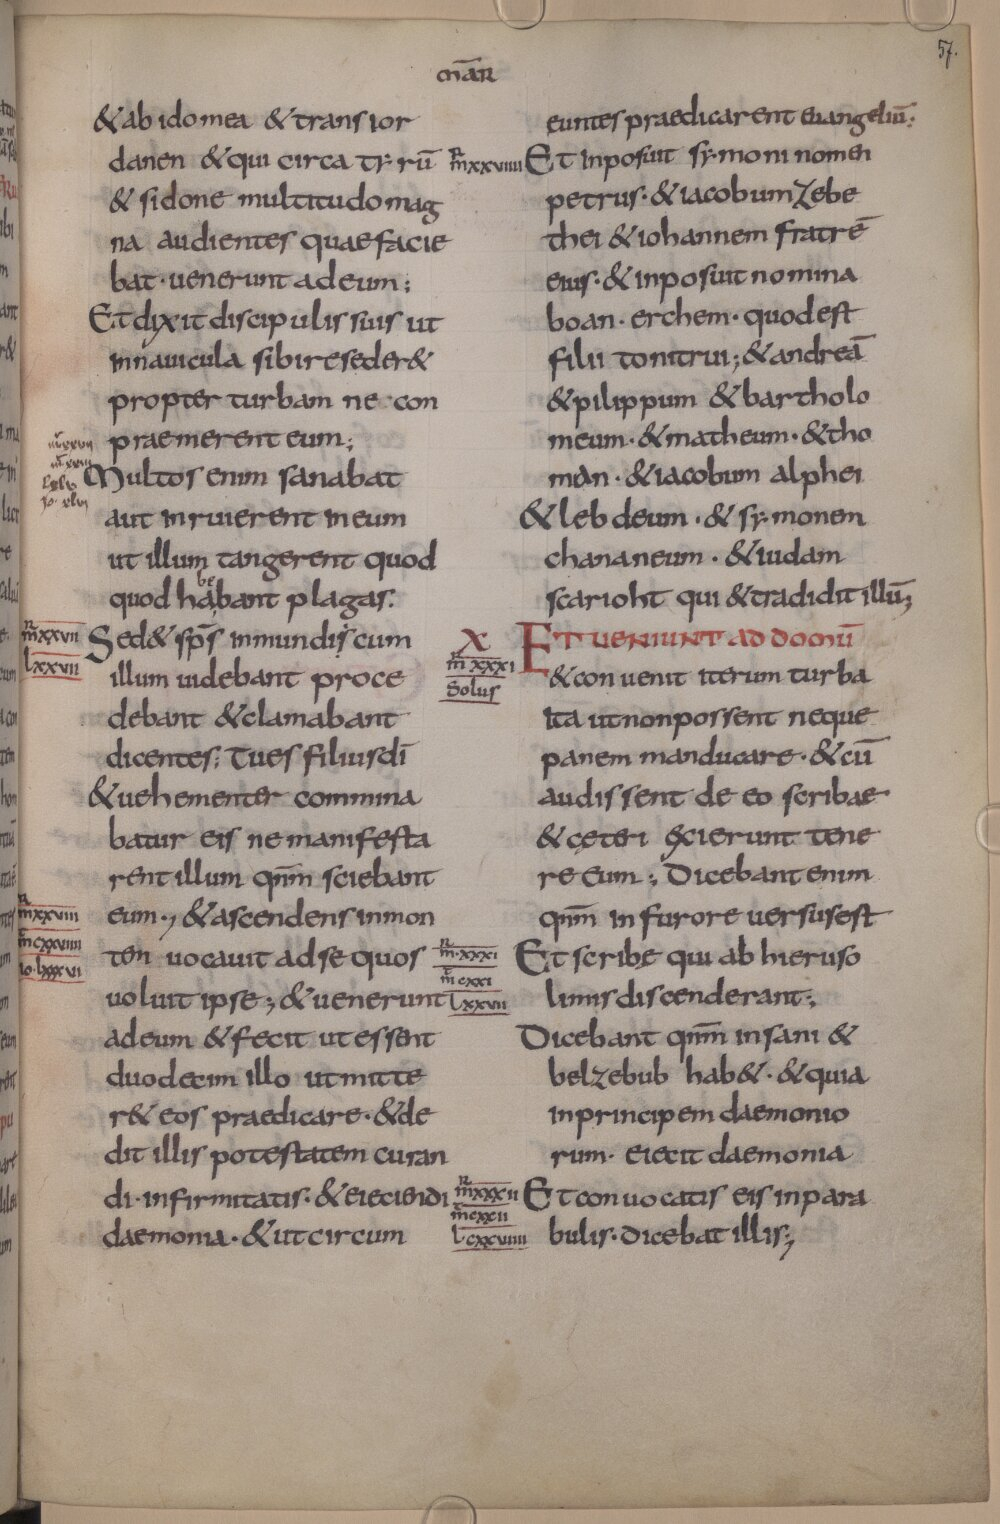 57.
mār
& ab idomea & trans ior
danen & qui circa tyrū
& sidone multitudo mag
na audientes quae facie
bat · uenerunt ad eum ;
Et dixit discipulis suis ut
in nauicula sibi reseder&
propter turbam ne con
praemerent eum ;
Multos enim sanabat
aut inruierent in eum
ut illum tangerent quod
quod habebant plagas :
Sed & sp̄s inmundis cum
illum uidebant proce
debant & clamabant
dicentes ; Tu es filius dī
& uehementer commina
batur eis ne manifesta
rent illum qnm̄ sciebant
eum ; & ascendens in mon
tem uocauit ad se quos
uoluit ipse ; & uenerunt
ad eum & fecit ut essent
duodecim illo ut mitte
r& eos praedicare · & de
dit illis potestatem curan
di · infirmitatis · & eieciendi
daemonia · & ut circum
m̄ xxvii
l xxvii
m̄ xxviii
m̄ cxxviiii
io · lxxxvi
euntes praedicarent euangeliū ;
m̄ xxviiii
Et inposuit symoni nomen
petrus · & iacobum zebe
thei & iohannem fratrē
eius · & inposuit nomina
boan · erchem · quod est
filii tonitrui ; & andreā
& pilippum & bartholo
meum · & matheum · & tho
man · & iacobum alphei
& lebdeum · & symonem
chananeum · & iudam
scarioht qui & tradidit illū ;
X
m̄ xxxi
Solus
Et ueniunt ad domū
& conuenit iterum turba
ita ut non possent neque
panem manducare · & cū
audissent de eo scribae
& cęteri exierunt tene
re eum ; Dicebant enim
qnm̄ in furore uersus est
m̄ · xxxi
m̄ cxxi
l xxvii
Et scribę qui ab hieruso
limis discenderant ;
Dicebant qnm̄ insani &
belzebub hab& · & quia
in principem daemonio
rum · eiecit daemonia
m̄ xxxii
m̄ cxxii
l cxxviiii
Et conuocatis eis in para
bulis · dicebat illis ;